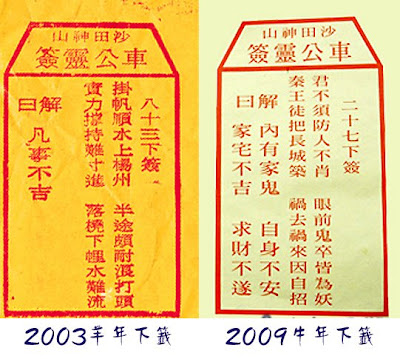 沙田神山
車公靈簽
八十三下簽
掛帆順水上楊州 半途頗耐浪打頭
實力撐持難寸進 落橈下水難流
解 凡事不吉
曰
2003羊年下籤
沙田神山
車公靈簽
二十七下簽
君不須防人不肖 眼前鬼卒皆為妖
秦王徒把長城築 禍去禍來因自招
解 內有家鬼 自身不安
曰 家宅不吉 求財不遂
2009牛年下籤